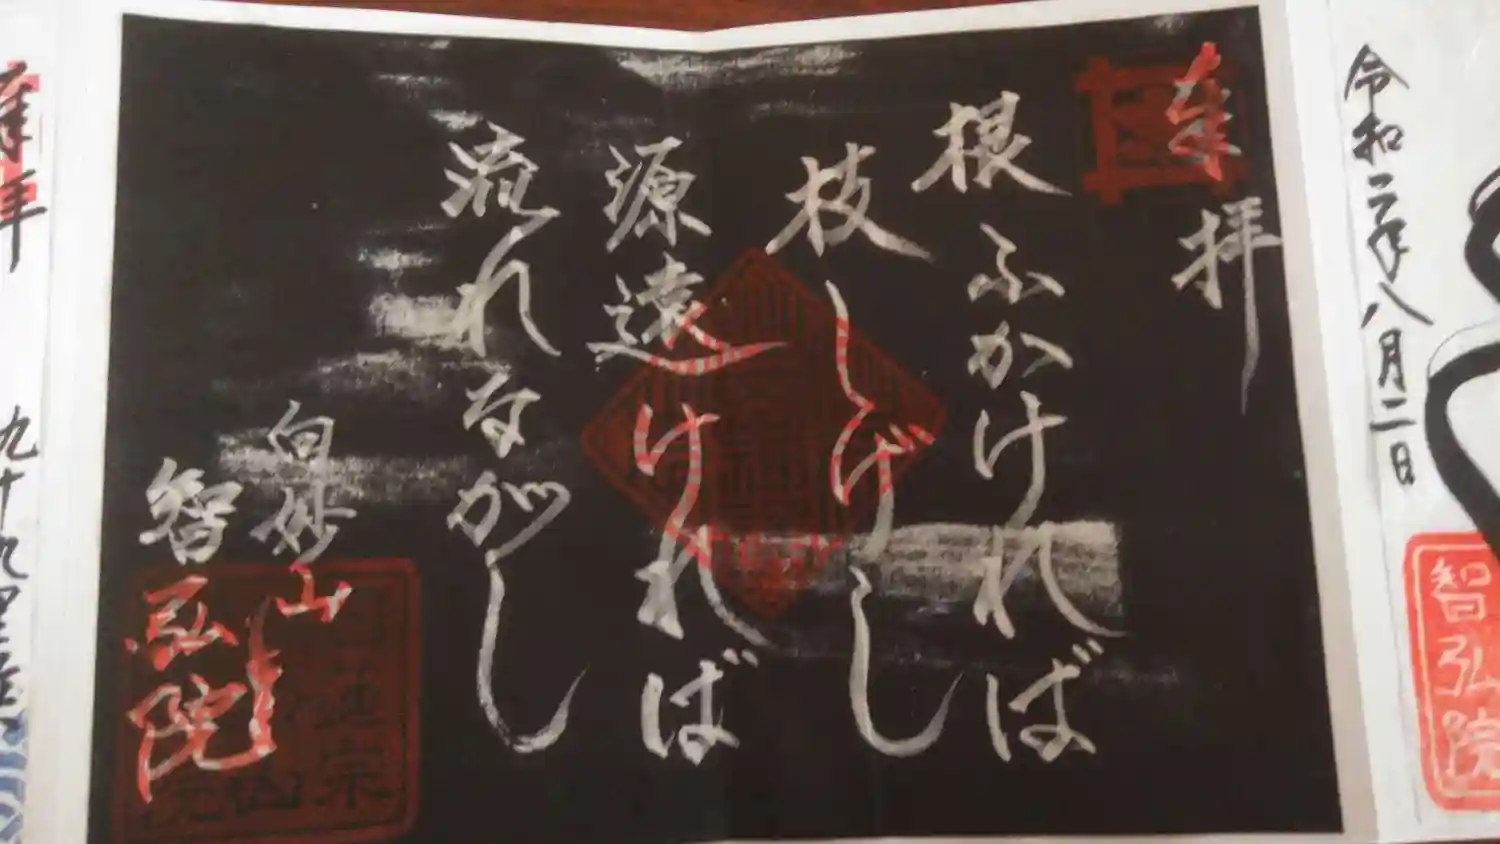 令和二年八月二日
智弘院
奉拝
根ふかければ
枝しげし
源遠ければ
流れながし
白妙山
智弘院
拝
九十九里